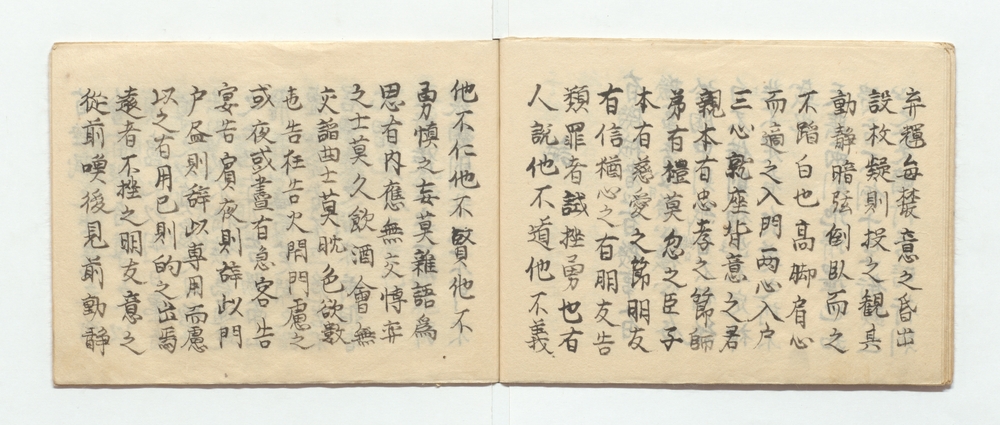 弃獋每蔾意之昏出
設救疑則投之観其
動静暗弦倒臥而之
不蹈白也高脚肩心
而適之入門両心入户
三心乾座背意之君
親本有忠孝之節師
弟有禮莫忽之臣子
本有慈愛之節朋友
有信楢心之有朋友告
類罪者試挫勇也有
人說他不道他不義
他不仁他不賢他不
勇慎之妄莫雜語為
思有内應無交博弈
之士莫久飲酒會無
交諂曲士莫眈色欲數
也告狂告火閇門慮之
或夜或晝有急客告
宴告賓夜則辞以門
户昷則辞以専用而慮
以之有用已則的之出焉
遠者不挫之朋友意之
從前嘆後見前動靜